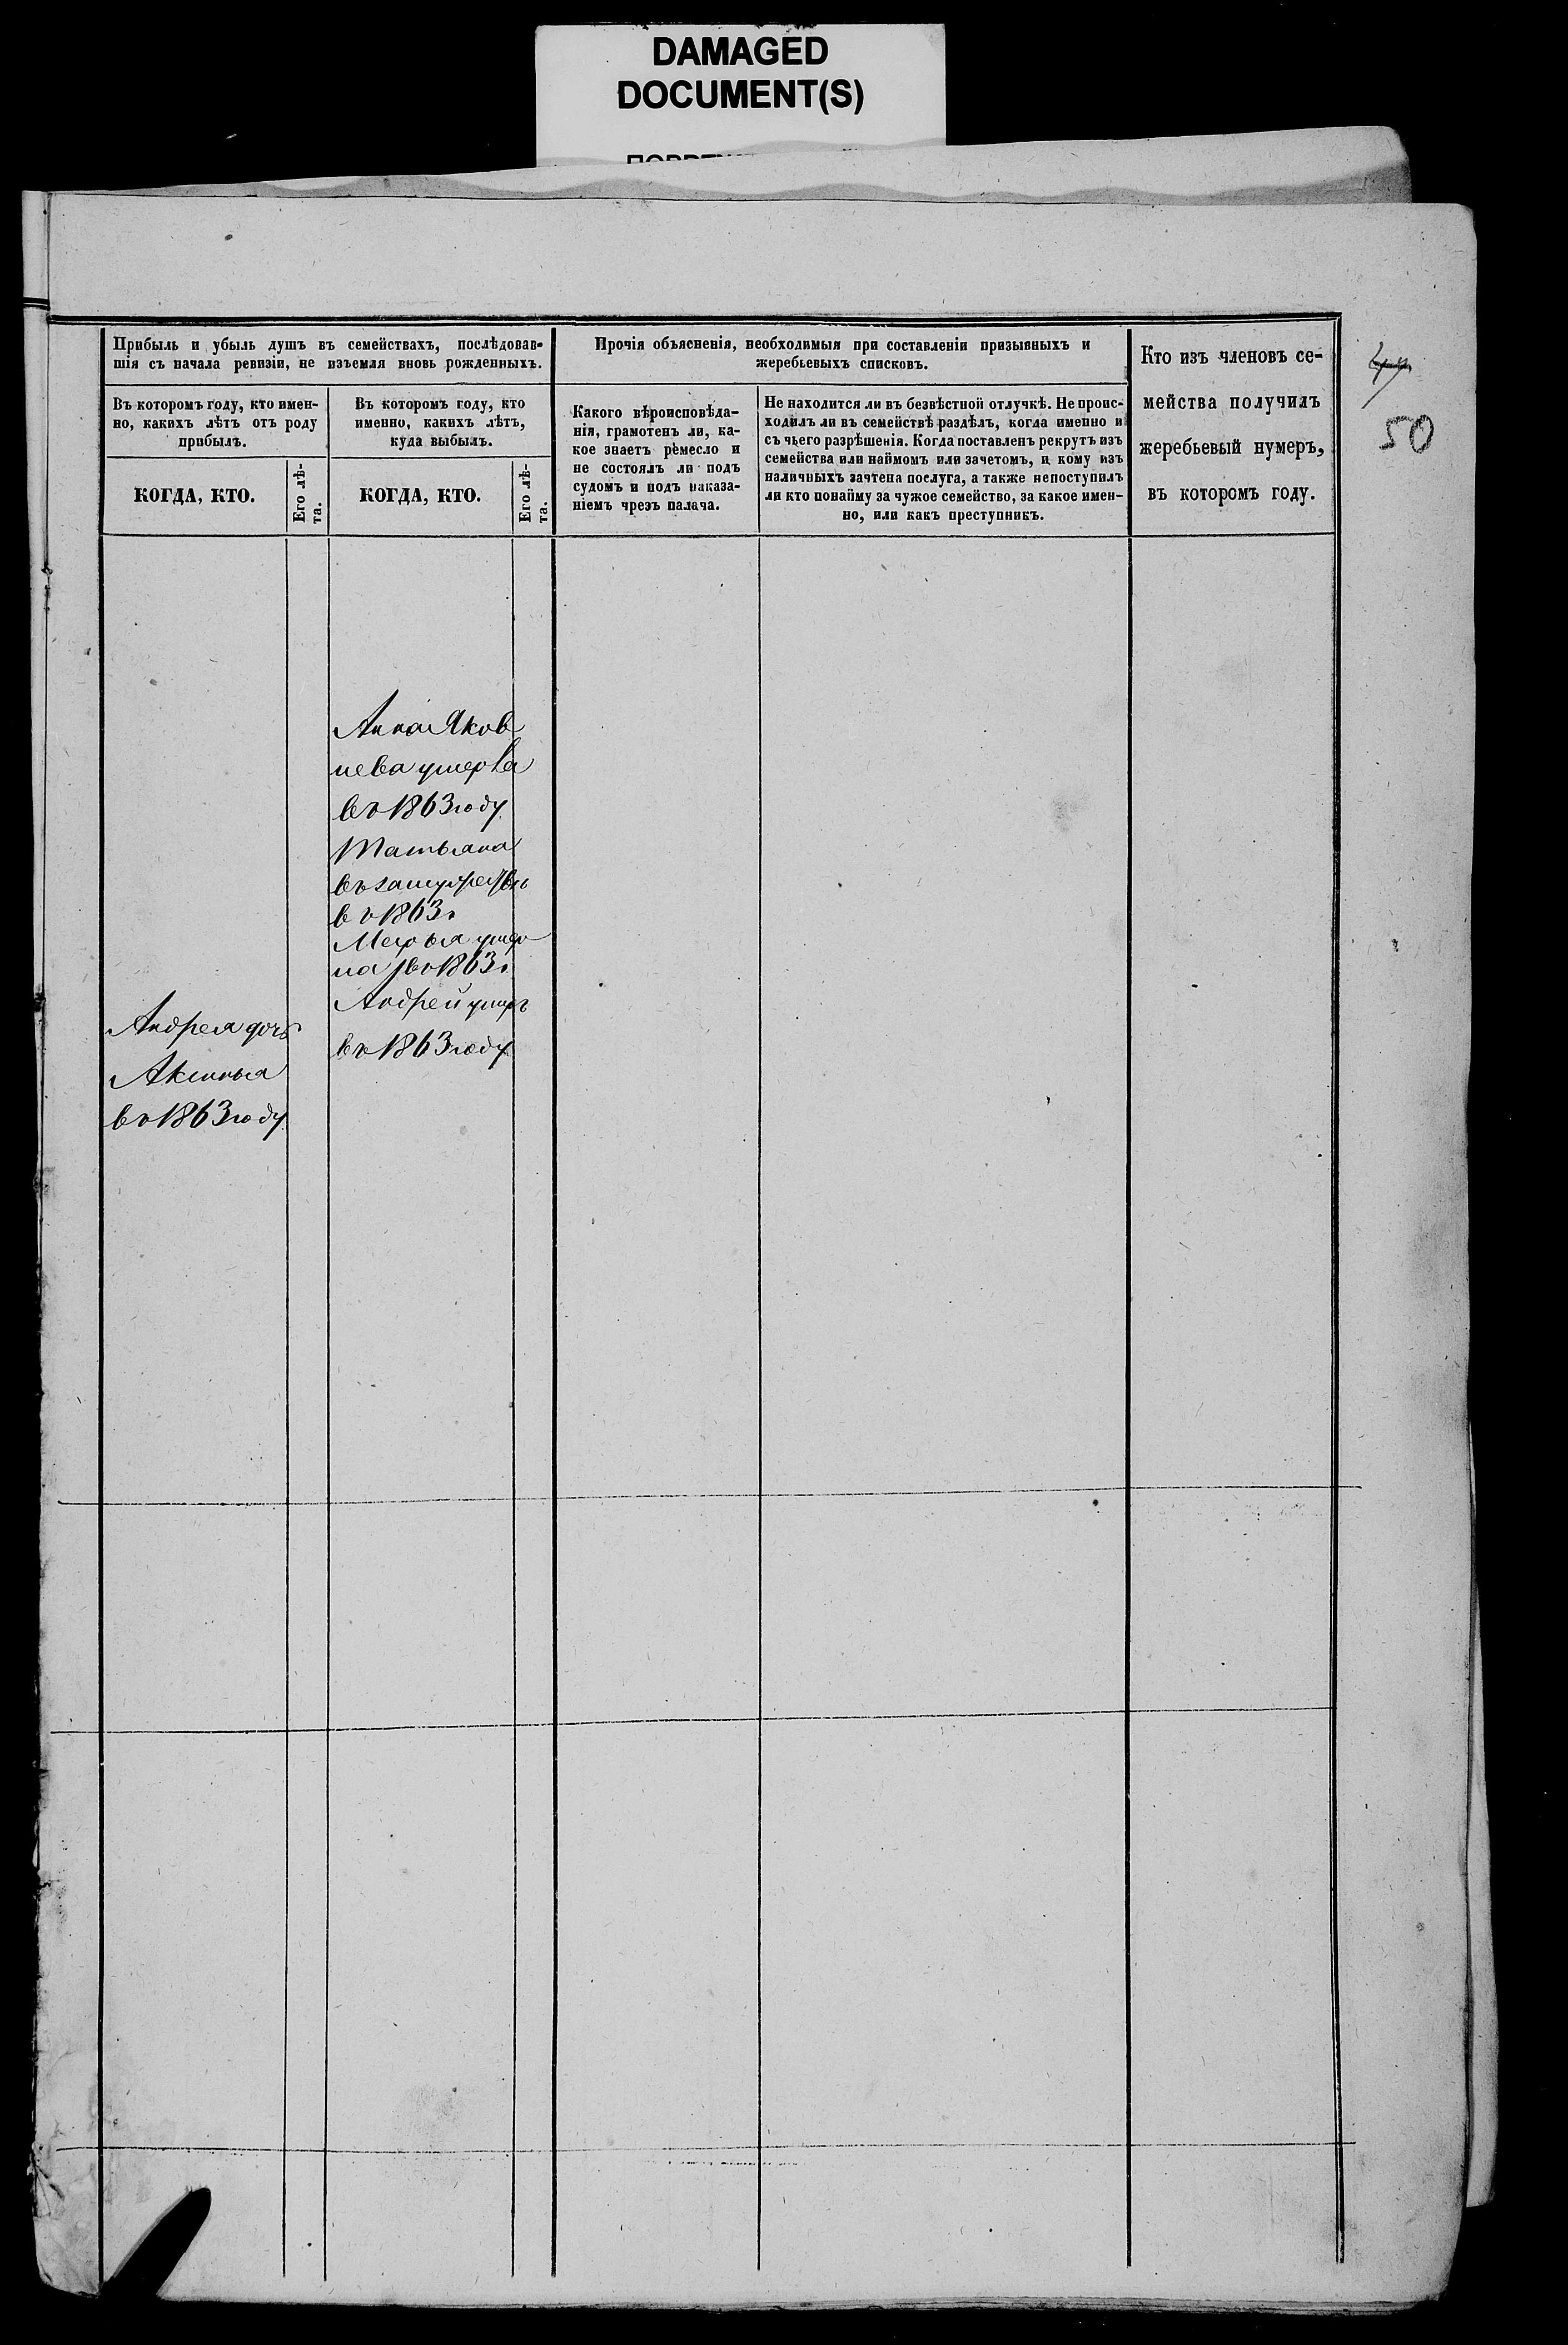 DAMAGED
DOCUMENT(S)
47
50
Прибыль и убыль душъ въ семействахъ, послѣдовав-
шія съ начала ревизіи, не изъемля вновь рожденныхъ.
Въ которомъ году, кто имен-
но, какихъ лѣтъ отъ роду
прибылъ.
КОГДА, КТО.
Его лѣ-
та.
Въ которомъ году, кто
именно, какихъ лѣтъ,
куда выбылъ.
КОГДА, КТО.
Его лѣ-
та.
Прочія объясненія, необходимыя при составленіи призывныхъ и
жеребьевыхъ списковъ.
Какого вѣроисповѣда-
нія, грамотенъ ли, ка-
кое знаетъ ремесло и
не состоялъ ли подъ
судомъ и подъ наказа-
ніемъ чрезъ палача.
Не находится ли въ безвѣстной отлучкѣ. Не проис-
ходилъ ли въ семействѣ раздѣлъ, когда именно и
съ чьего разрѣшенія. Когда поставленъ рекрутъ изъ
семейства или наймомъ или зачетомъ, и кому изъ
наличныхъ зачтена послуга, а также непоступилъ
ли кто понайму за чужое семейство, за какое имен-
но, или какъ преступникъ.
Кто изъ членовъ се-
мейства получилъ
жеребьевый нумеръ,
въ которомъ году.
Анна Яков
лева умерла
въ 1863 году
Татьяна
въ
въ 1863 г
Марья умер
ла въ 1863 г
Андрей умеръ
въ 1863 году
Андрея дочь
Аксинья
въ 1863 году